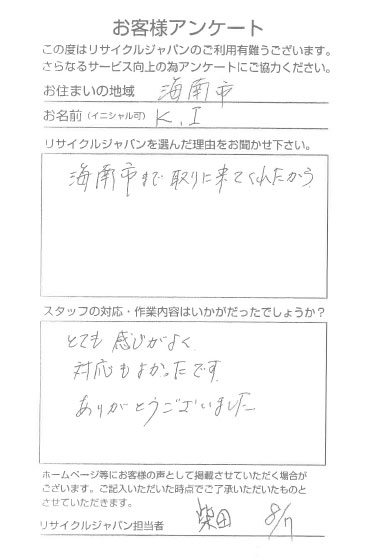 お客様アンケート
この度はリサイクルジャパンのご利用有難うございます。
さらなるサービス向上の為アンケートにご協力ください。
お住まいの地域 海南市
お名前(イニシャル可) K.I
リサイクルジャパンを選んだ理由をお聞かせ下さい。
海南市まで取りに来てくれたから
スタッフの対応・作業内容はいかがだったでしょうか?
とても感じがよく
対応もよかったです
ありがとうございました
ホームページ等にお客様の声として掲載させていただく場合が
ございます。ご記入いただいた時点でご了承いただいたものと
させていただきます。
リサイクルジャパン担当者 柴田 8/7